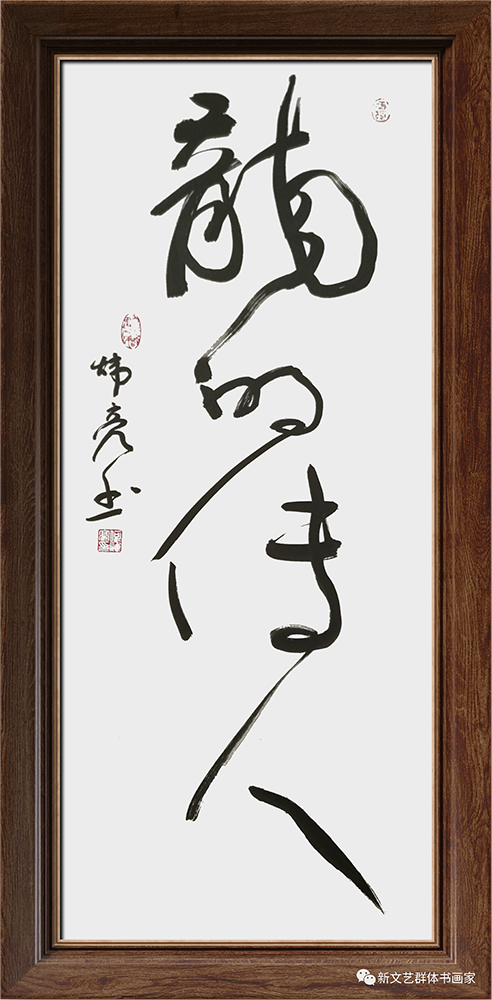 龍的傳人
煒亮书
新文艺群体书画家